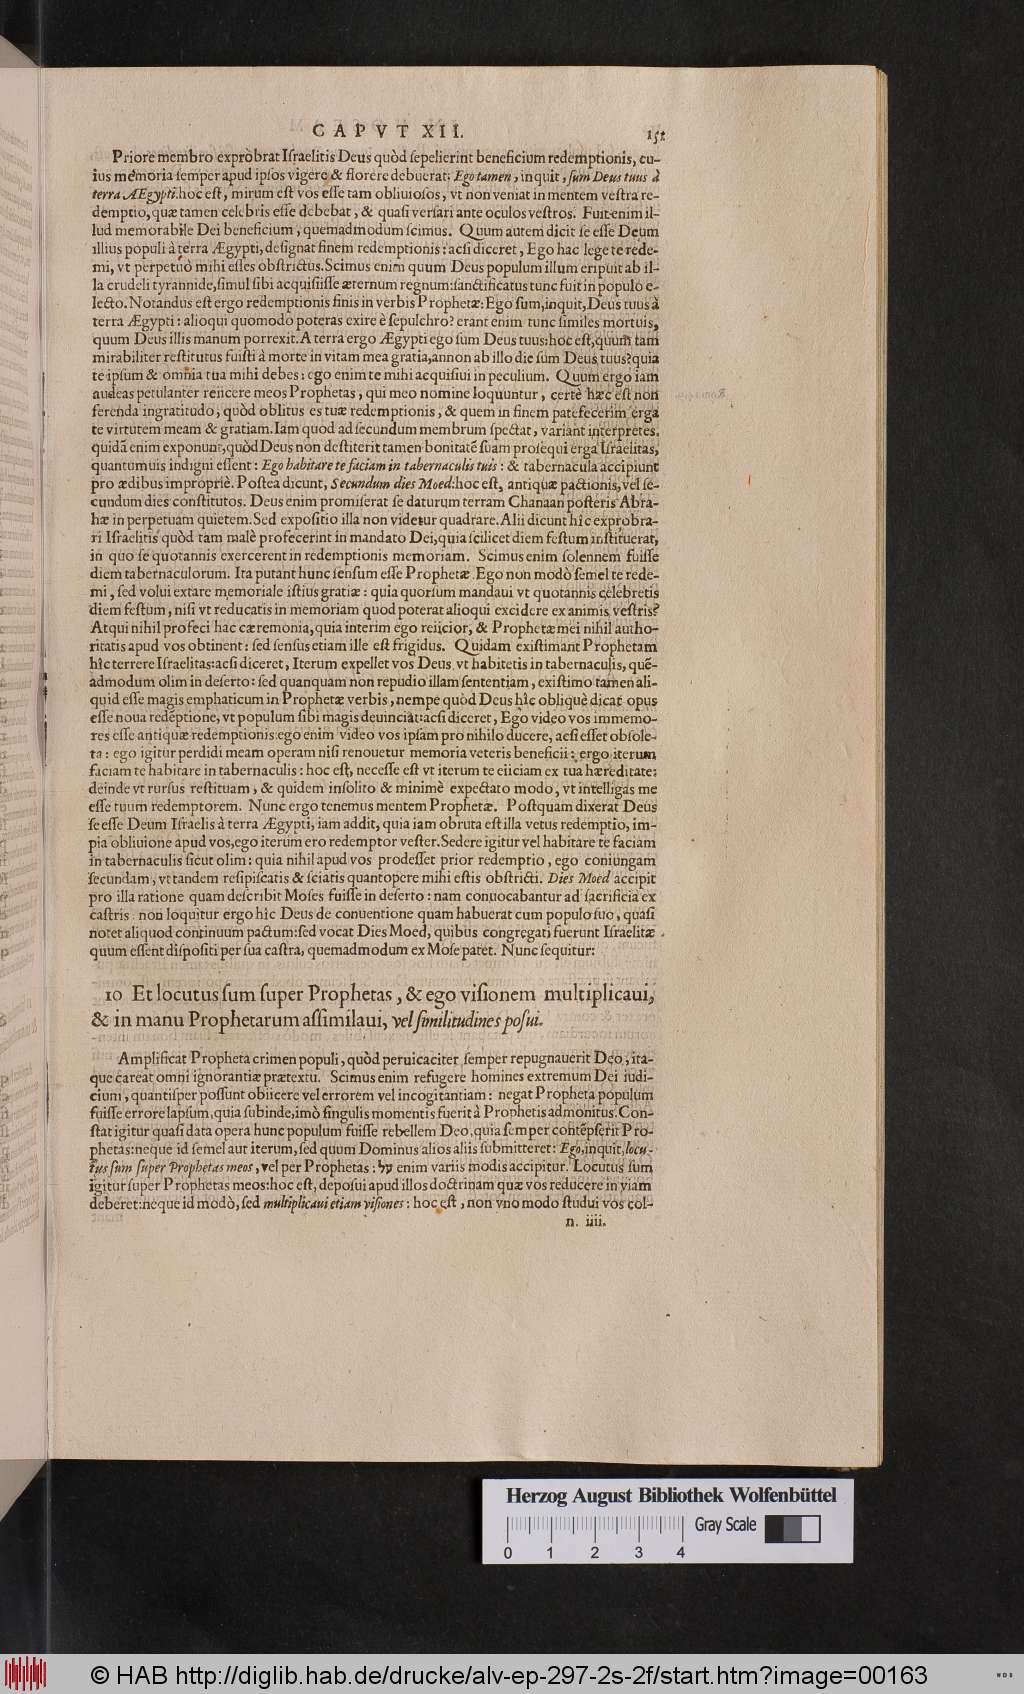 CAPVT XII. 151
Priore membro exprobrat Iſraelitis Deus quòd ſepelierint beneficium redemptionis, cu-
ius memoria ſemper apud ipſos vigere & florere debuerat: Ego tamen, inquit, ſum Deus tuus à
terra AEgypti. hoc eſt, mirum eſt vos eſſe tam obliuioſos, vt non veniat in mentem veſtra re-
demptio, quæ tamen celebris eſſe debebat, & quaſi verſari ante oculos veſtros. Fuit enim il-
lud memorabile Dei beneficium, quemadmodum ſcimus. Quum autem dicit ſe eſſe Deum
illius populi à terra Ægypti, deſignat finem redemptionis: acſi diceret, Ego hac lege te rede-
mi, vt perpetuò mihi eſſes obſtrictus. Scimus enim quum Deus populum illum eripuit ab il-
la crudeli tyrannide, ſimul ſibi acquiſiiſſe æternum regnum: ſanctificatus tunc fuit in populo e-
lecto. Notandus eſt ergo redemptionis finis in verbis Prophetæ: Ego ſum, inquit, Deus tuus à
terra Ægypti: alioqui quomodo poteras exire è ſepulchro? erant enim tunc ſimiles mortuis,
quum Deus illis manum porrexit. A terra ergo Ægypti ego ſum Deus tuus: hoc eſt, quum tam
mirabiliter reſtitutus fuiſti à morte in vitam mea gratia, annon ab illo die ſum Deus tuus? quia
te ipſum & omnia tua mihi debes: ego enim te mihi acquiſiui in peculium. Quum ergo iam
audeas petulanter reiicere meos Prophetas, qui meo nomine loquuntur, certè hæc eſt non
ferenda ingratitudo, quòd oblitus es tuæ redemptionis, & quem in finem patefecerim erga
te virtutem meam & gratiam. Iam quod ad ſecundum membrum ſpectat, variant interpretes.
quidã enim exponunt, quòd Deus non deſtiterit tamen bonitatẽ ſuam proſequi erga Iſraelitas,
quantumuis indigni eſſent: Ego habitare te faciam in tabernaculis tuis: & tabernacula accipiunt
pro ædibus impropriè. Poſtea dicunt, Secundum dies Moed: hoc eſt, antiquæ pactionis, vel ſe-
cundum dies conſtitutos. Deus enim promiſerat ſe daturum terram Chanaan poſteris Abra-
hæ in perpetuam quietem. Sed expoſitio illa non videtur quadrare. Alii dicunt hîc exprobra-
ri Iſraelitis quòd tam malè profecerint in mandato Dei, quia ſcilicet diem feſtum inſtituerat,
in quo ſe quotannis exercerent in redemptionis memoriam. Scimus enim ſolennem fuiſſe
diem tabernaculorum. Ita putant hunc ſenſum eſſe Prophetæ. Ego non modò ſemel te rede-
mi, ſed volui extare memoriale iſtius gratiæ: quia quorſum mandaui vt quotannis celebretis
diem feſtum, niſi vt reducatis in memoriam quod poterat alioqui excidere ex animis veſtris?
Atqui nihil profeci hac cæremonia, quia interim ego reiicior, & Prophetæ mei nihil autho-
ritatis apud vos obtinent: ſed ſenſus etiam ille eſt frigidus. Quidam exiſtimant Prophetam
hîc terrere Iſraelitas: acſi diceret, Iterum expellet vos Deus vt habitetis in tabernaculis, quẽ-
admodum olim in deſerto: ſed quanquam non repudio illam ſententiam, exiſtimo tamen ali-
quid eſſe magis emphaticum in Prophetæ verbis, nempe quòd Deus hîc obliquè dicat opus
eſſe noua redẽptione, vt populum ſibi magis deuinciat: acſi diceret, Ego video vos immemo-
res eſſe antiquæ redemptionis: ego enim video vos ipſam pro nihilo ducere, acſi eſſet obſole-
ta: ego igitur perdidi meam operam niſi renouetur memoria veteris beneficii: ergo iterum
faciam te habitare in tabernaculis: hoc eſt, neceſſe eſt vt iterum te eiiciam ex tua hæreditate:
deinde vt rurſus reſtituam, & quidem inſolito & minimè expectato modo, vt intelligas me
eſſe tuum redemptorem. Nunc ergo tenemus mentem Prophetæ. Poſtquam dixerat Deus
ſe eſſe Deum Iſraelis à terra Ægypti, iam addit, quia iam obruta eſt illa vetus redemptio, im-
pia obliuione apud vos, ego iterum ero redemptor veſter. Sedere igitur vel habitare te faciam
in tabernaculis ſicut olim: quia nihil apud vos prodeſſet prior redemptio, ego coniungam
ſecundam, vt tandem reſipiſcatis & ſciatis quantopere mihi eſtis obſtricti. Dies Moed accipit
pro illa ratione quam deſcribit Moſes fuiſſe in deſerto: nam conuocabantur ad ſacrificia ex
caſtris. non loquitur ergo hîc Deus de conuentione quam habuerat cum populo ſuo, quaſi
notet aliquod continuum pactum: ſed vocat Dies Moed, quibus congregati fuerunt Iſraelitæ
quum eſſent diſpoſiti per ſua caſtra, quemadmodum ex Moſe patet. Nunc ſequitur:
10 Et locutus ſum ſuper Prophetas, & ego viſionem multiplicaui,
& in manu Prophetarum aſſimilaui, vel ſimilitudines poſui.
Amplificat Propheta crimen populi, quòd peruicaciter ſemper repugnauerit Deo, ita-
que careat omni ignorantiæ prætextu. Scimus enim refugere homines extremum Dei iudi-
cium, quantiſper poſſunt obiicere vel errorem vel incogitantiam: negat Propheta populum
fuiſſe errore lapſum, quia ſubinde, imò ſingulis momentis fuerit à Prophetis admonitus. Con-
ſtat igitur quaſi data opera hunc populum fuiſſe rebellem Deo, quia ſemper contẽpſerit Pro-
phetas: neque id ſemel aut iterum, ſed quum Dominus alios aliis ſubmitteret: Ego, inquit, locu-
tus ſum ſuper Prophetas meos, vel per Prophetas: על enim variis modis accipitur. Locutus ſum
igitur ſuper Prophetas meos: hoc eſt, depoſui apud illos doctrinam quæ vos reducere in viam
deberet: neque id modò, ſed multiplicaui etiam viſiones: hoc eſt, non vno modo ſtudui vos col-
n. iiii.
Herzog August Bibliothek Wolfenbüttel
Gray Scale
0 1 2 3 4
© HAB http://diglib.hab.de/drucke/alv-ep-297-2s-2f/start.htm?image=00163